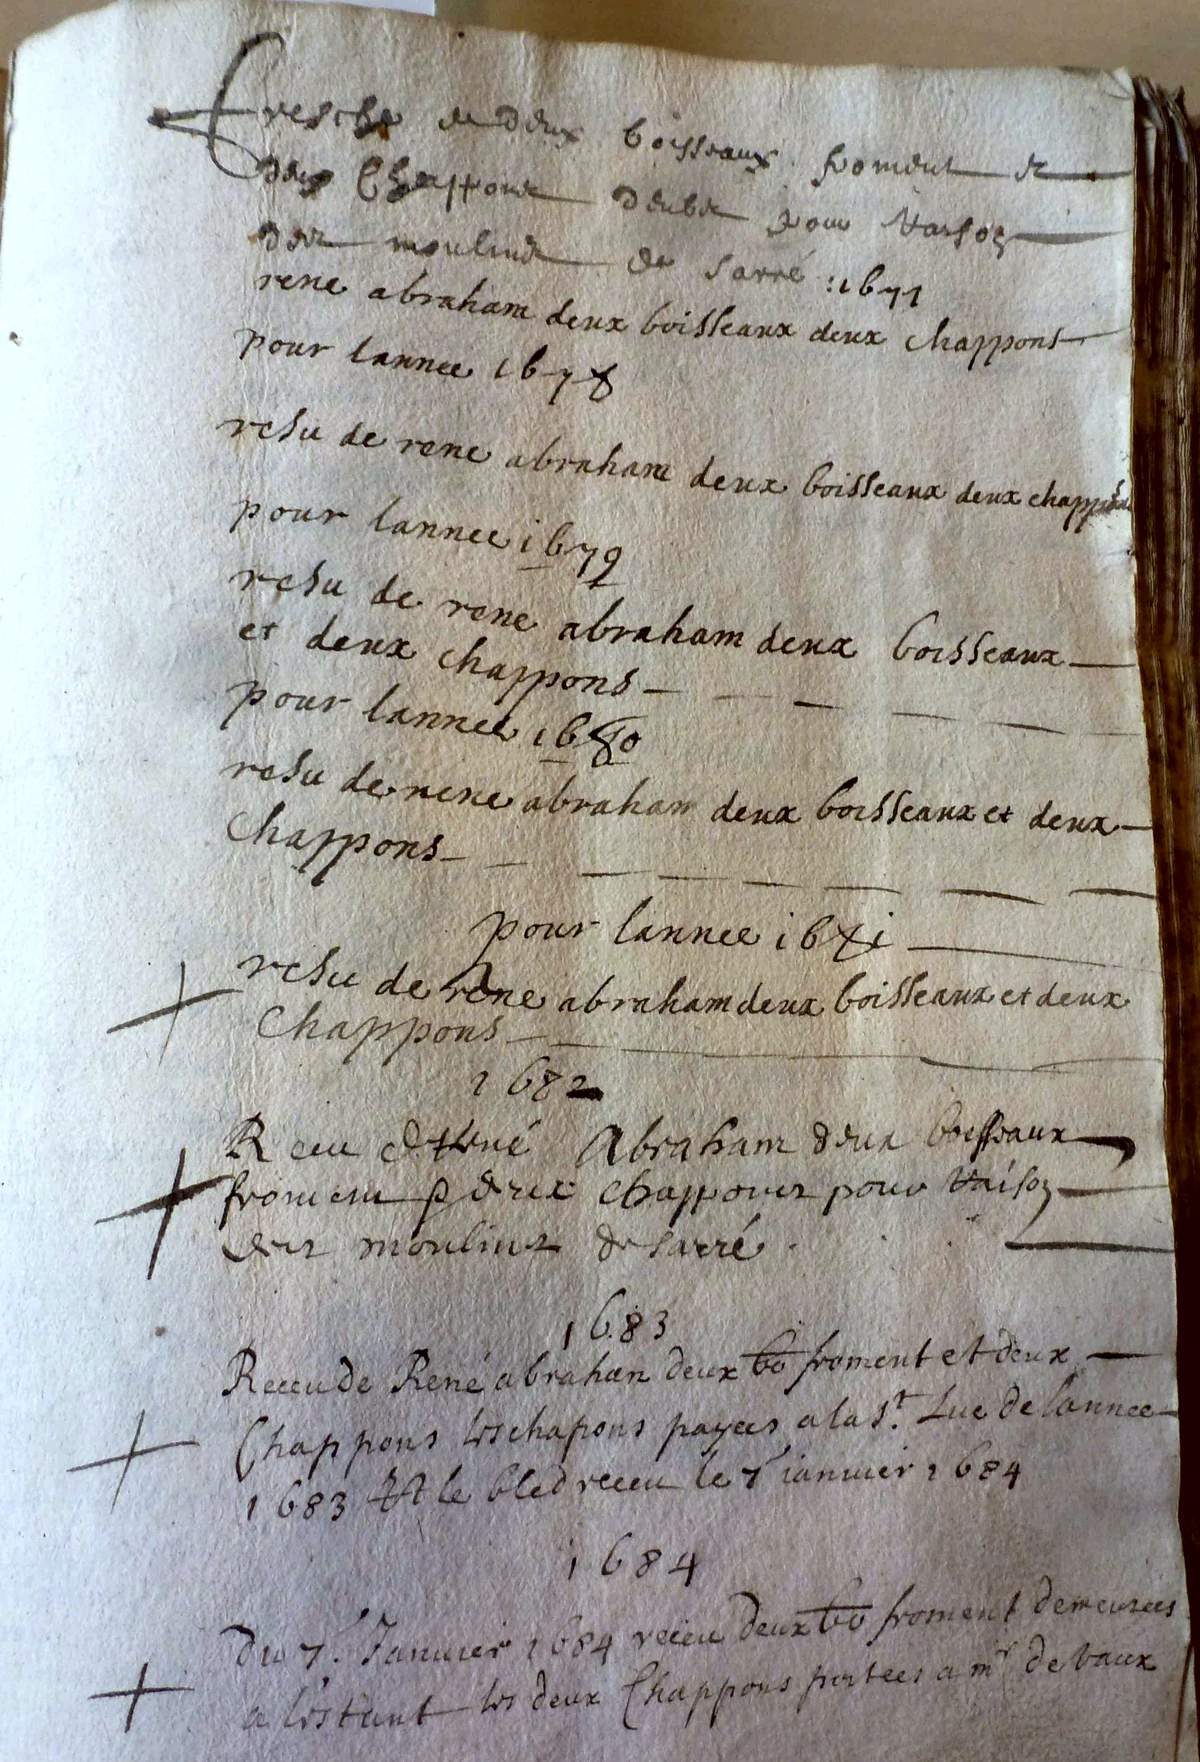 Fresche de deux boisseaux froment et
deux Chappons deubz pour raison
des moulins de sarré : 1671
rene abraham deux boisseaux deux chappons
pour lannee 1678
resu de rene abraham deux boisseaux deux chappons
pour lannee i679
resu de rene abraham deux boisseaux
et deux chappons
pour lannee 1680
resu de rene abraham deux boisseaux et deux
Chappons
pour lannee i68i
resu de rene abraham deux boisseaux et deux
Chappons
1682
Receu de René Abraham deux boisseaux
froment & deux chappons pour raison
des moulins de sarré
1683
Receu de René abraham deux bo froment et deux
Chappons les chapons payees a la st. Luc de lannee
1683 Et le bled receu le 7 ianuier 1684
1684
Du 7. Januier 1684 receu deux bo froment
a les deux Chappons portees a mr de vaux